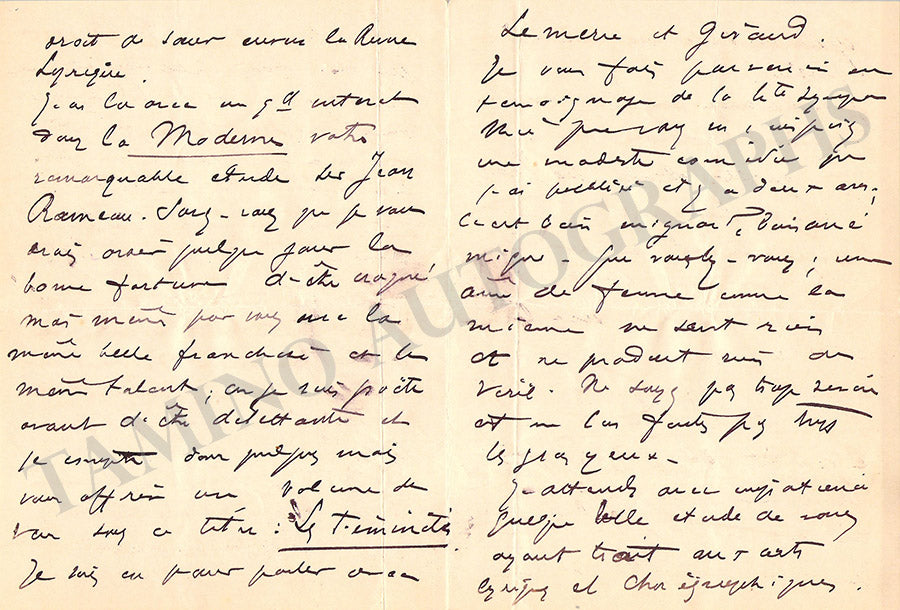 droit de sœur envers la Revue
Lyrique.
J'ai lu avec un gd intérêt
dans la Moderne votre
remarquable étude sur Jean
Rameau. Savez-vous que je vous
devrai quelque jour la
bonne fortune d'être croqué
moi même par vous avec la
même belle franchise et le
même talent, car je suis poète
avant d'être dilettante et
je compte dans quelques mois
vous offrir un volume de
vers sous ce titre : Les Féminités.
Je suis en pourparler avec
Lemerre et Girard.
Je vous fais parvenir en
témoignage de la
une modeste comédie que
j'ai publiée il y a deux ans,
C'est bien mignard,
Que voulez-vous, une
âme de femme comme la
mienne ne sent rien
et ne produit rien de
viril. Ne soyez pas trop sévère
et ne las faites pas trop
les gros yeux.
J'attends avec impatience
quelque belle étude de vous
ayant trait aux arts
lyriques et chorégraphiques.
TAMINO AUTOGRAPHS